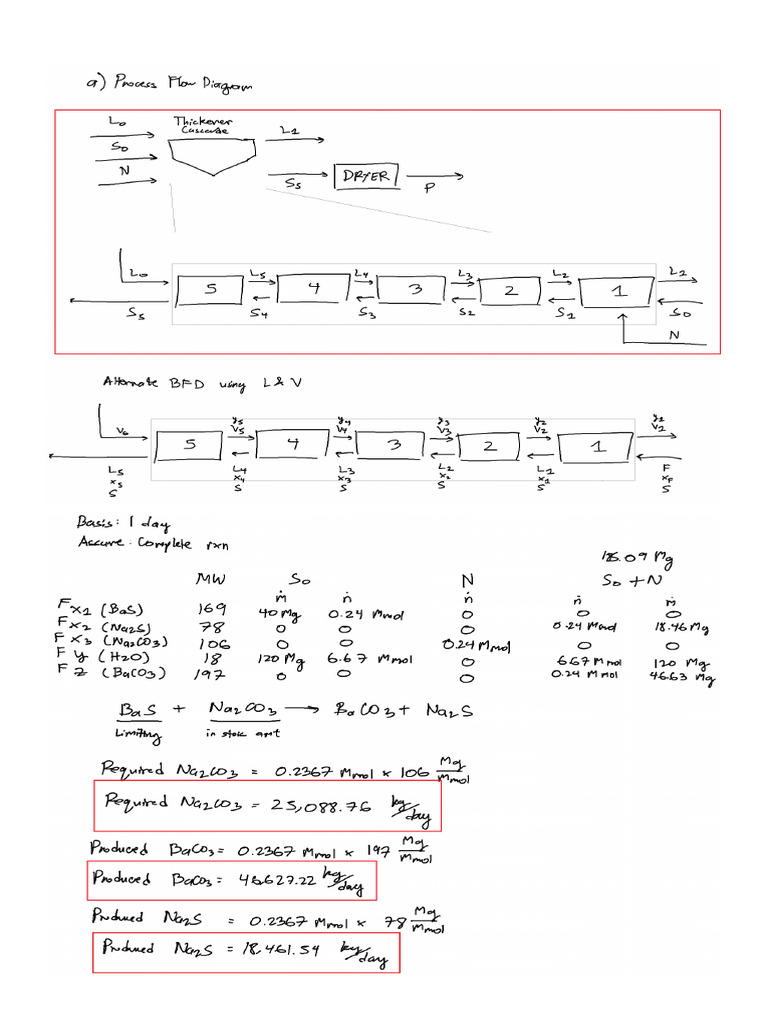 a) Process Flow Diagram
L0 Thickener Cascade L1
S0
N S5 DRYER P
L0 5 L5 4 L4 3 L3 2 L2 1 L1
S5 S4 S3 S2 S1 S0
N
Alternate BFD using L & V
y5 y4 y3 y2 y1
V0 5 V5 4 V4 3 V3 2 V2 1 V1
L5 L4 L3 L2 L1 F
x5 x4 x3 x2 x1 xF
S S S S S S
Basis: 1 day
Assume: Complete rxn
185.09 Mg
MW S0 N S0 + N
ṁ ṅ ṅ ṅ ṁ
F x1 (BaS) 169 40 Mg 0.24 Mmol 0 0 0
F x2 (Na2S) 78 0 0 0 0.24 Mmol 18.46 Mg
F x3 (Na2CO3) 106 0 0 0.24 Mmol 0 0
F y (H2O) 18 120 Mg 6.67 Mmol 0 6.67 Mmol 120 Mg
F z (BaCO3) 197 0 0 0 0.24 Mmol 46.63 Mg
BaS + Na2CO3 → BaCO3 + Na2S
Limiting in stoic amt
Required Na2CO3 = 0.2367 Mmol × 106 Mg/Mmol
Required Na2CO3 = 25,088.76 kg/day
Produced BaCO3 = 0.2367 Mmol × 197 Mg/Mmol
Produced BaCO3 = 46,627.22 kg/day
Produced Na2S = 0.2367 Mmol × 78 Mg/Mmol
Produced Na2S = 18,461.54 kg/day